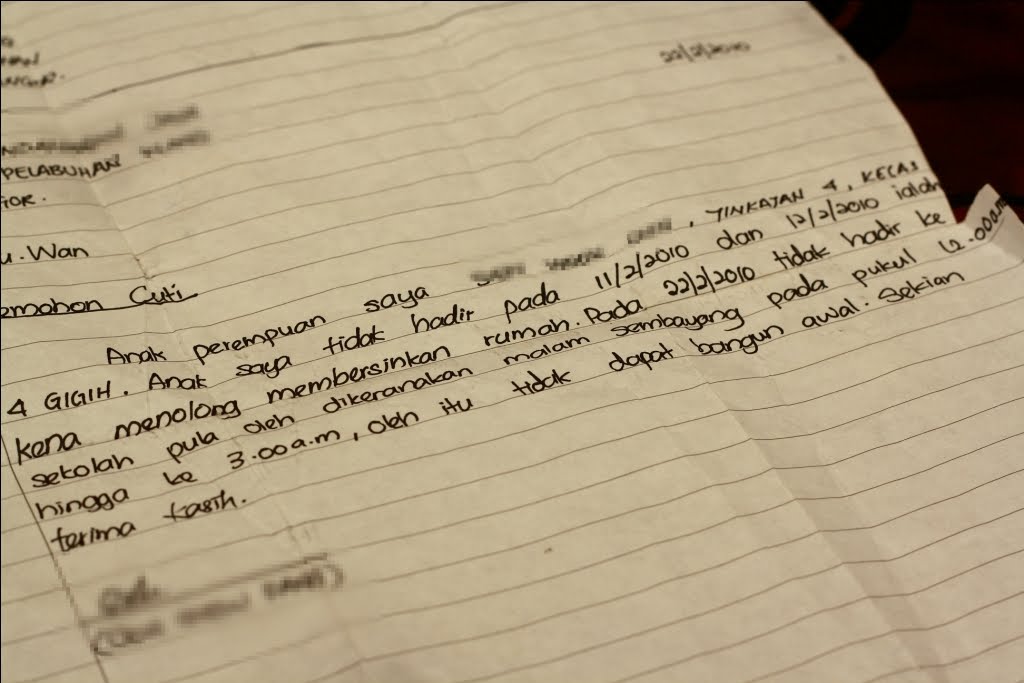 22/2/2010
PELABUHAN
u. Wan
emohon Cuti
Anak perempuan saya , TINKATAN 4, KECAS
4 GIGIH. Anak saya tidak hadir pada 11/2/2010 dan 12/2/2010 ialah
kena menolong membersinkan rumah. Pada 22/2/2010 tidak hadir ke
sekolah pula oleh dikeranakan malam sembayang pada pukul 12.00a.m
hingga ke 3.00a.m, oleh itu tidak dapat bangun awal. Sekian
terima kasih.